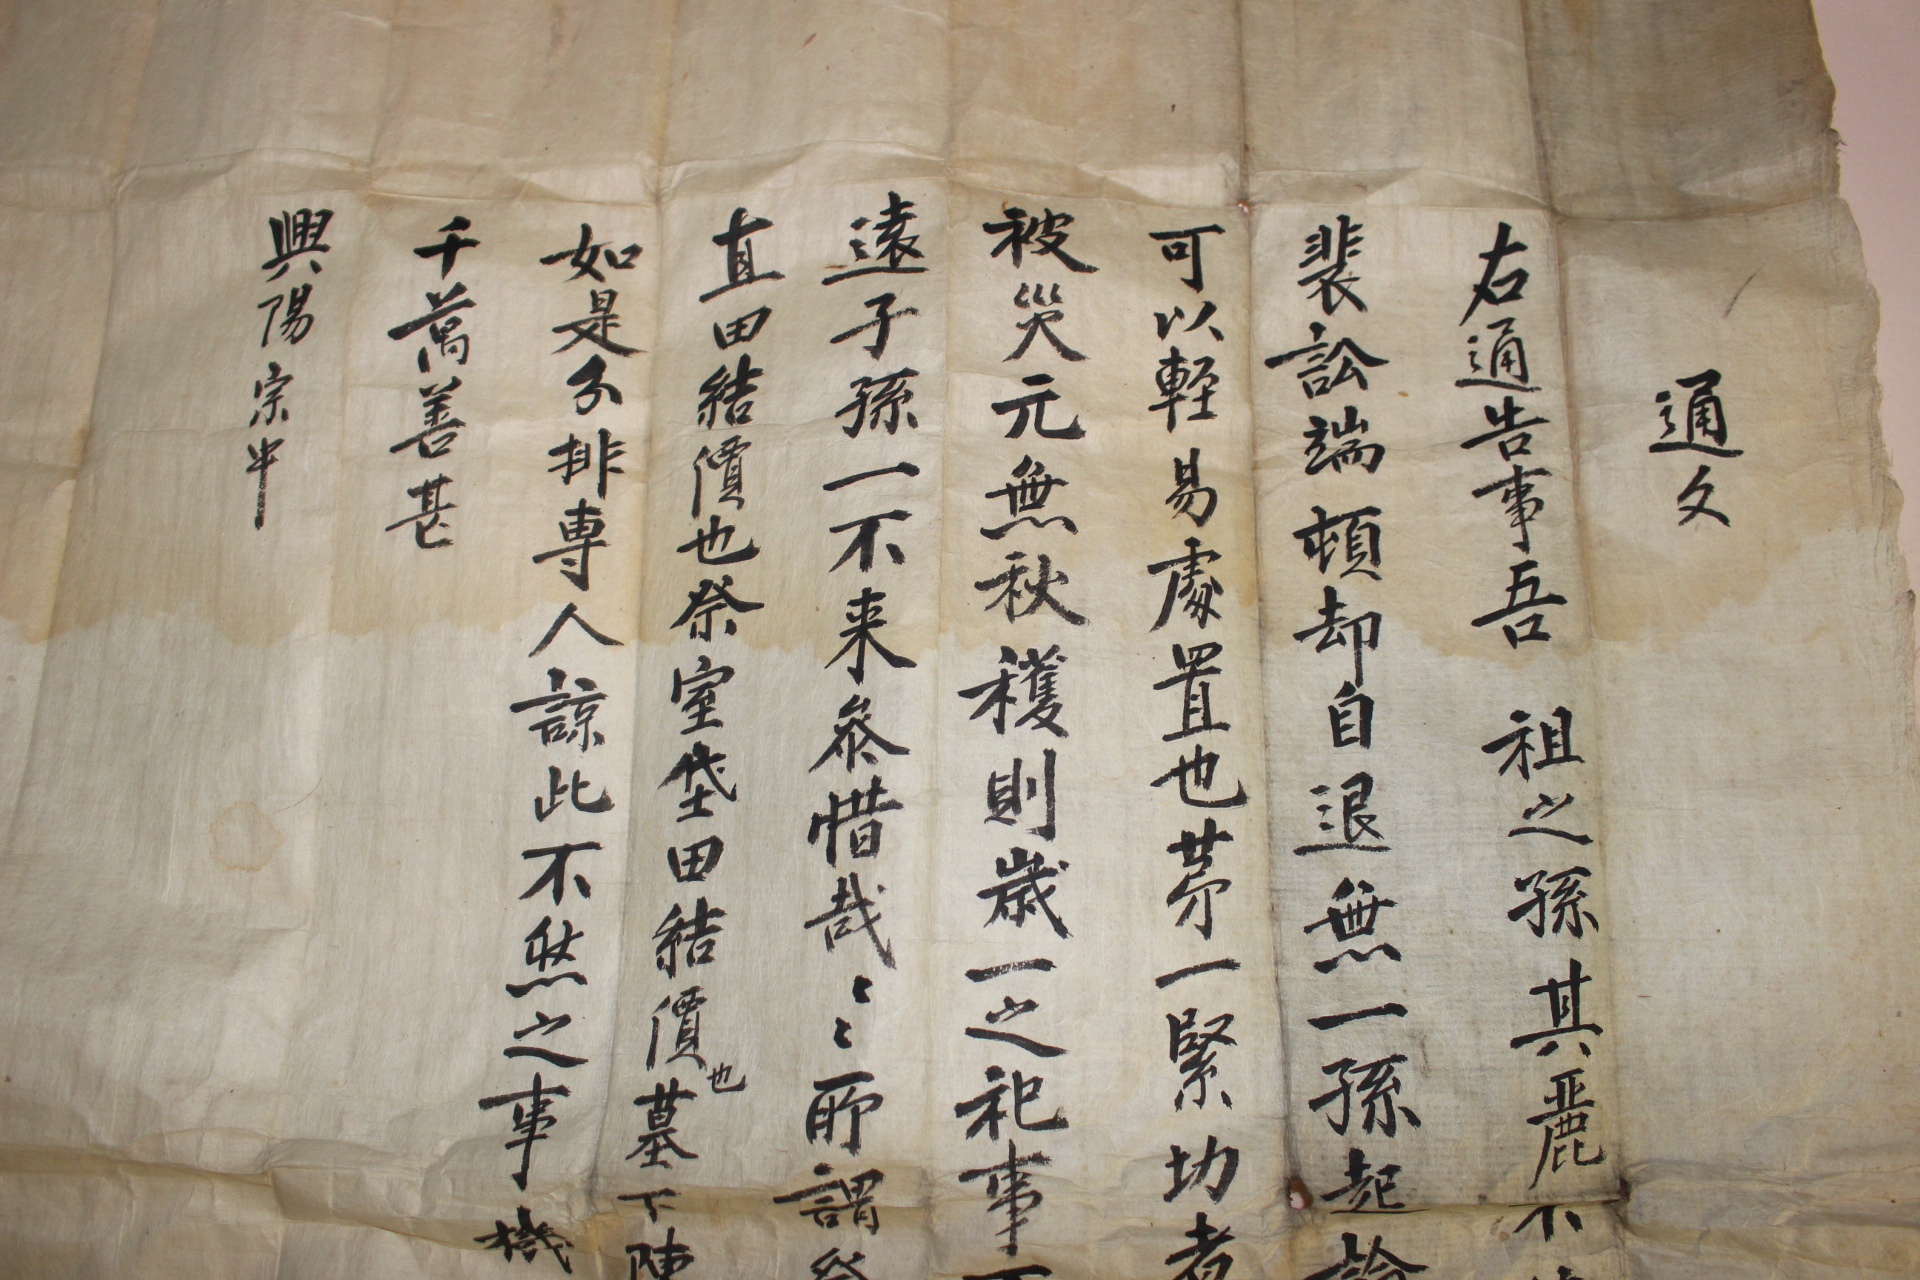 通文
右通告事吾 祖之孫其麗不
裴訟端頓却自退無一孫起論
可以輕易處置也苐一緊功者
被災元無秋穫則歲一之祀事
遠子孫一不来參惜哉〻〻所謂祭
直田結價也祭室垈田結價也墓下陳
如是分排専人諒此不然之事機
千萬善甚
興陽宗中